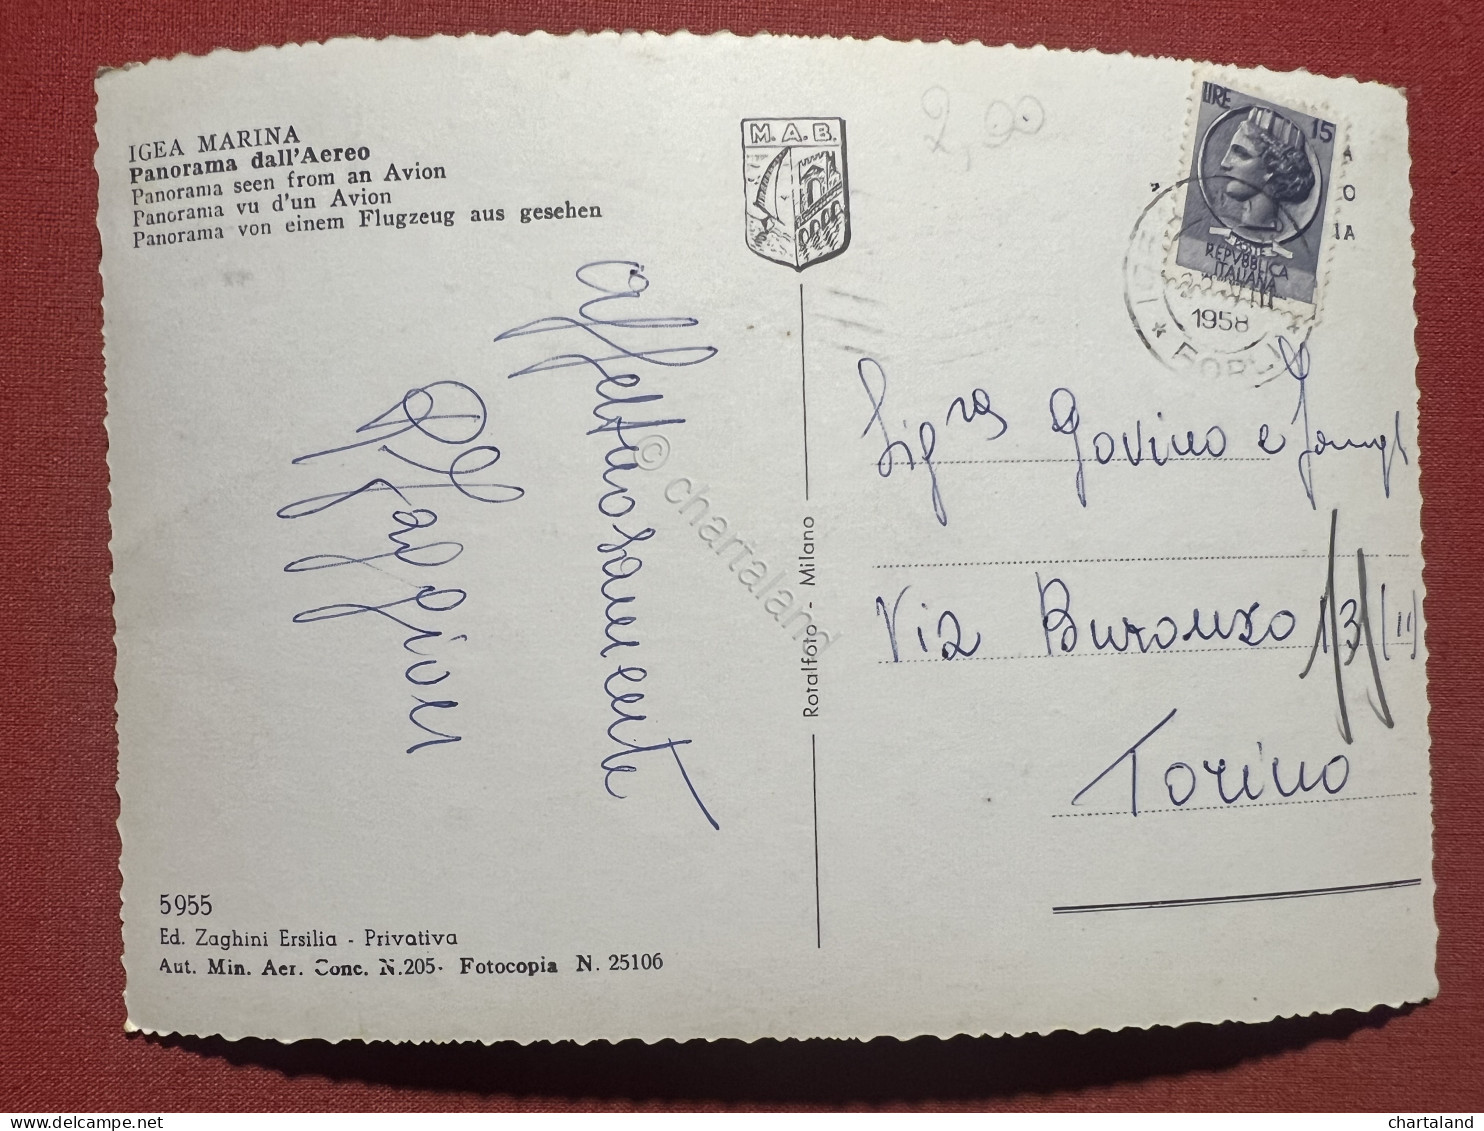 IGEA MARINA
Panorama dall'Aereo
Panorama seen from an Avion
Panorama vu d'un Avion
Panorama von einem Flugzeug aus gesehen
M.A.B.
2,00
LIRE 15
POSTE
REPVBBLICA
ITALIANA
A
O
IA
IGE
1958
FORLI
affettuosamente
Sig.ra Govino e famigl
Via Buronzo 13/(11)
Torino
Rotalfoto - Milano
5955
Ed. Zaghini Ersilia - Privativa
Aut. Min. Aer. Conc. N.205- Fotocopia N. 25106
© chartaland
chartaland